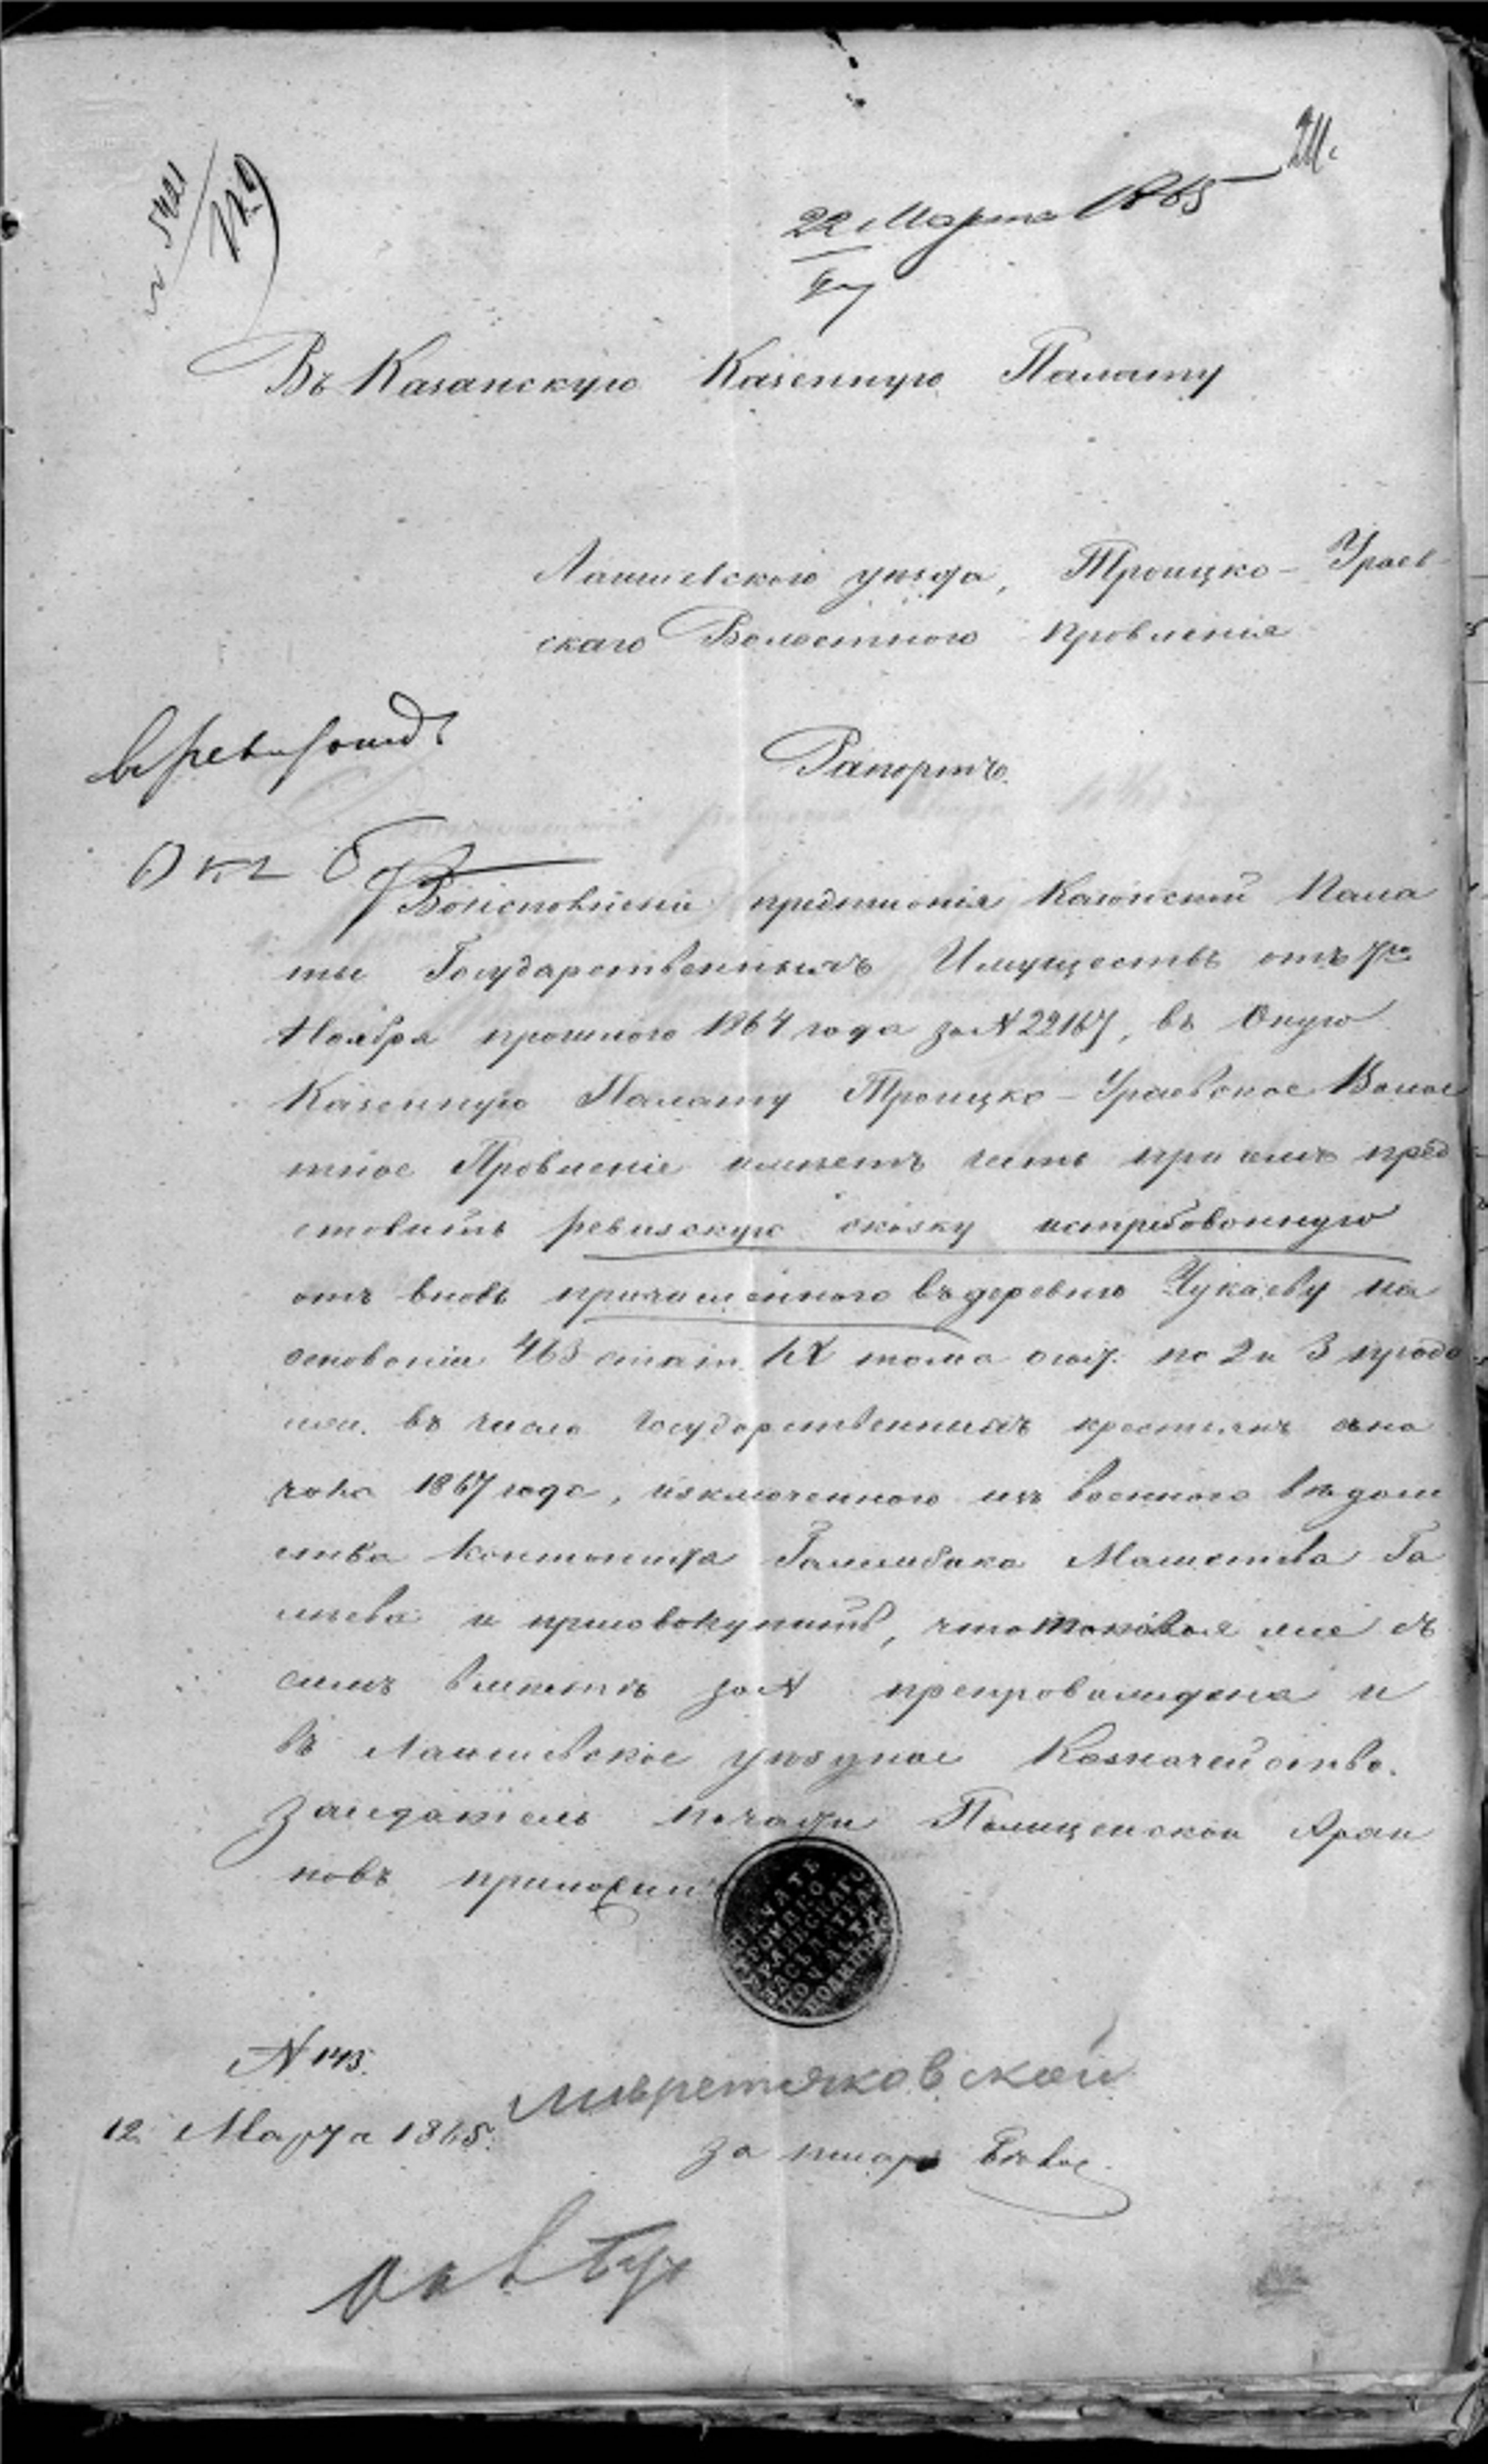 5421
22 Марта 1865
Въ Казанскую Казенную Палату
Лаишевского уѣзда, Троицко-Ураев-
скаго Волостного Правленія
Рапортъ.
Во исполненіи предписанія Казанской Пала
ты Государственныхъ Имуществъ отъ 7го
Ноября прошлого 1864 года за N 22167, въ Оную
Казенную Палату Троицко-Ураевское Волос
тное Правленіе имѣетъ честь при семъ пред
ставить ревизскую сказку истребованную
отъ вновь причисленного въ деревню Чукаеву на
основаніи 463 стат. IX тома по 2 и 3 продо
лж. въ число Государственныхъ крестьянъ съ на
чала 1867 года, исключенного изъ военного вѣдом
ства кантониста Галимбака Га
лѣева и присовокупить, что таковая же съ
симъ вмѣстѣ за N препровождена и
въ Лаишевское уѣздное Казначейство.
Заседатель по части Полицейской
новъ приложилъ
ПЕЧАТЬ
ТРОИЦКО
УРАЕВСКАГО
ЗАСЕДАТЕЛЯ
ПО ЧАСТИ
ПОЛИЦЕЙС
12 Марта 1865.
за писаря